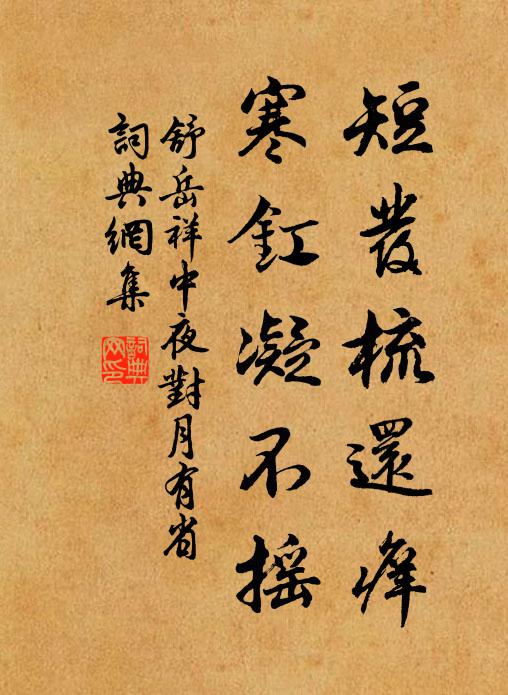 短發梳還癢
寒釭凝不搖
舒岳祥中夜對月有省
詞典網集
詞典網印